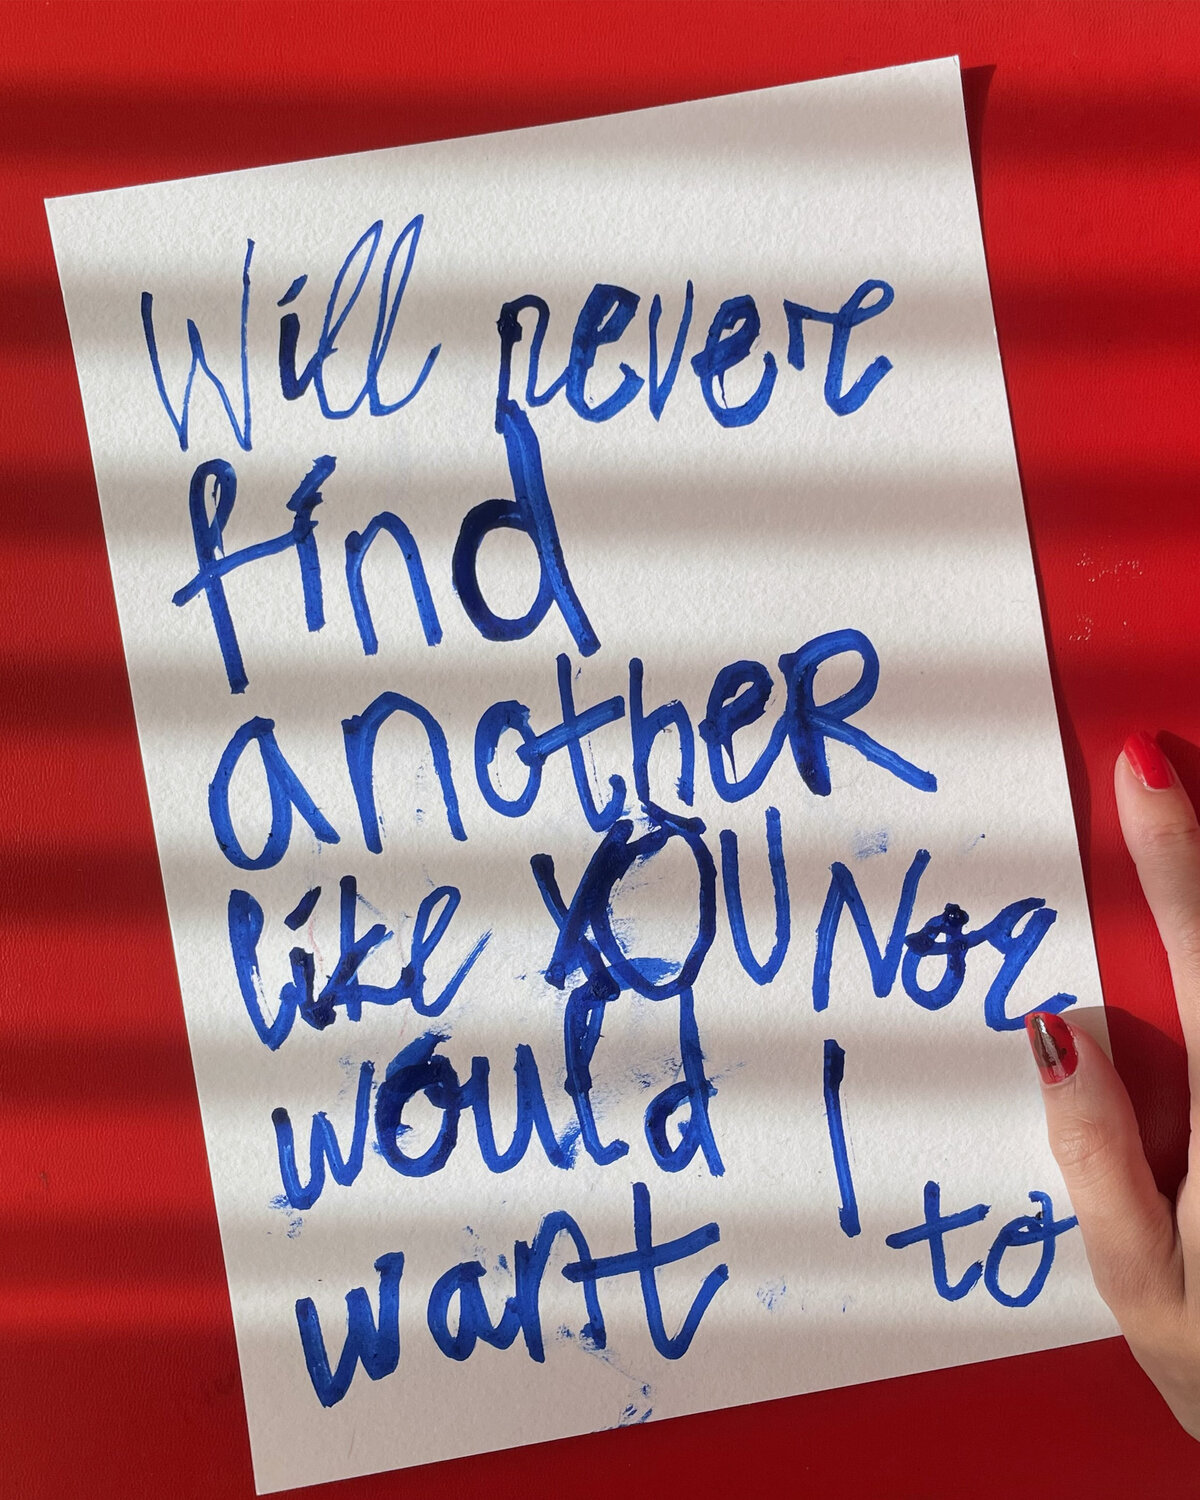 Will never
find
anotheR
like YOU Nor
would I
want to